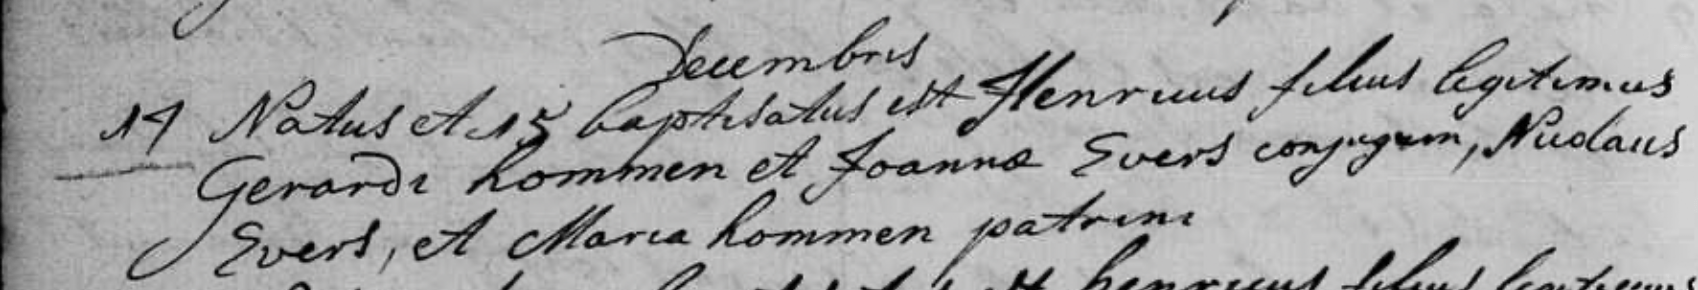 Decembris
14 Natus et 15 baptisatus est Henricus filius legitimus
Gerardi hommen et Joannæ Evers conjugum, Nicolaus
Evers, et Maria hommen patrini
est henricus filius legitimus